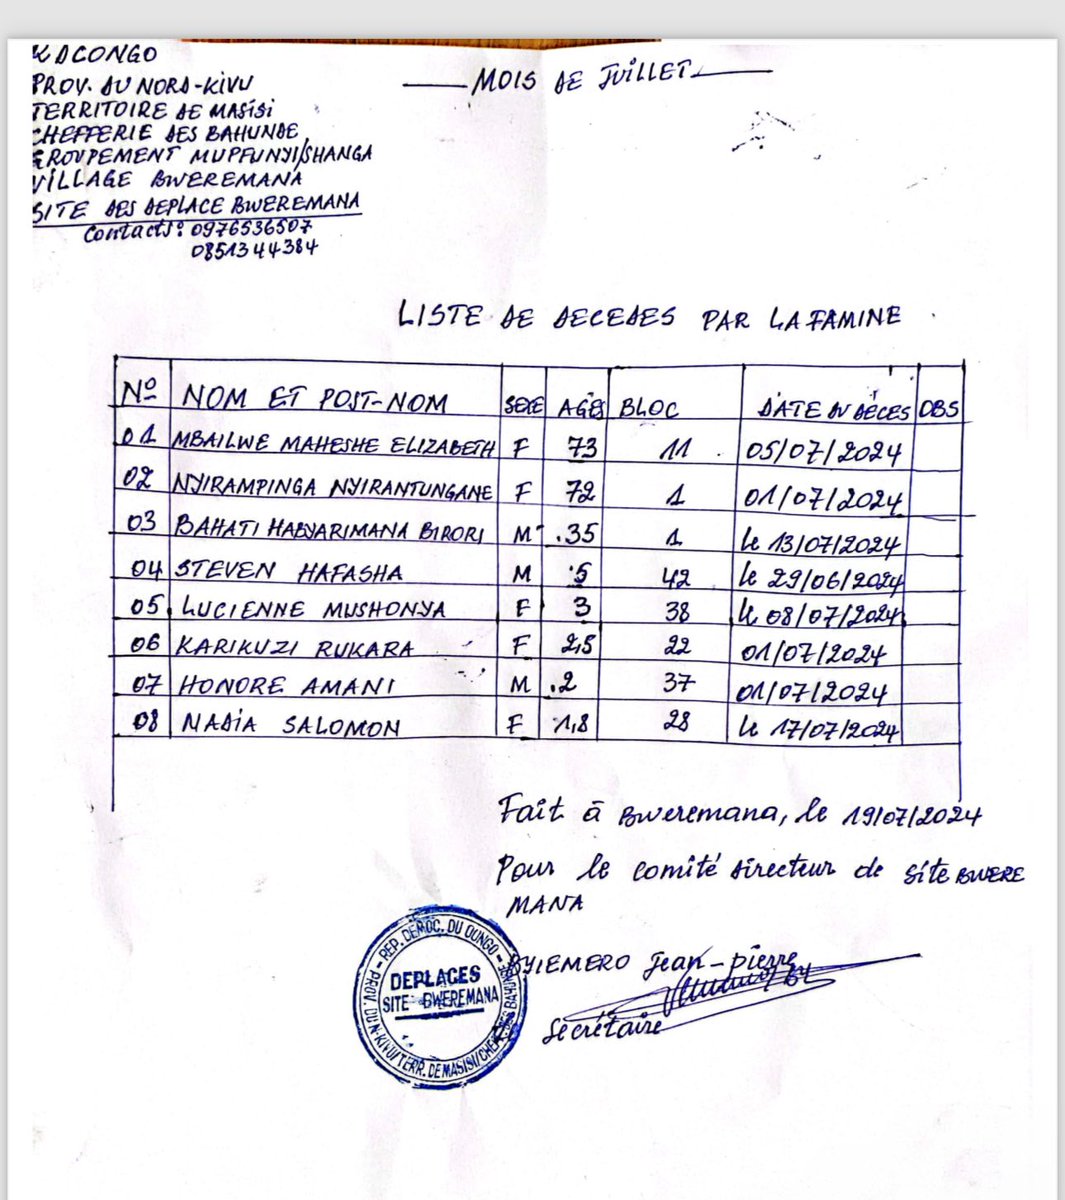 RDCONGO
PROV. DU NORD-KIVU
TERRITOIRE DE MASISI
CHEFFERIE DES BAHUNDE
GROUPEMENT MUPFUNYI/SHANGA
VILLAGE BWEREMANA
SITE DES DEPLACE BWEREMANA
Contacts: 0976536507
0851344384
MOIS DE JUILLET
LISTE DE DECEDES PAR LA FAMINE
No NOM ET POST-NOM SEXE AGES BLOC DATE DU DÉCES OBS
01 MBAILWE MAHESHE ELIZABETH F 73 11 05/07/2024
02 NYIRAMPINGA NYIRANTUNGANE F 72 1 01/07/2024
03 BAHATI HABYARIMANA BIRORI M 35 1 le 13/07/2024
04 STEVEN HAFASHA M 5 42 le 29/06/2024
05 LUCIENNE MUSHONYA F 3 38 le 08/07/2024
06 KARIKUZI RUKARA F 2,5 22 01/07/2024
07 HONORE AMANI M 2 37 01/07/2024
08 NADIA SALOMON F 1,8 28 le 17/07/2024
Fait à Bweremana, le 19/07/2024
Pour le comité directeur de site BWERE
MANA
BYIEMERO Jean-pierre
Sécrétaire
REP. DEMOC. DU CONGO
DEPLACES
SITE BWEREMANA
PROV. DU N-KIVU/TERR. DE MASISI/CHEF. DES BAHUNDE